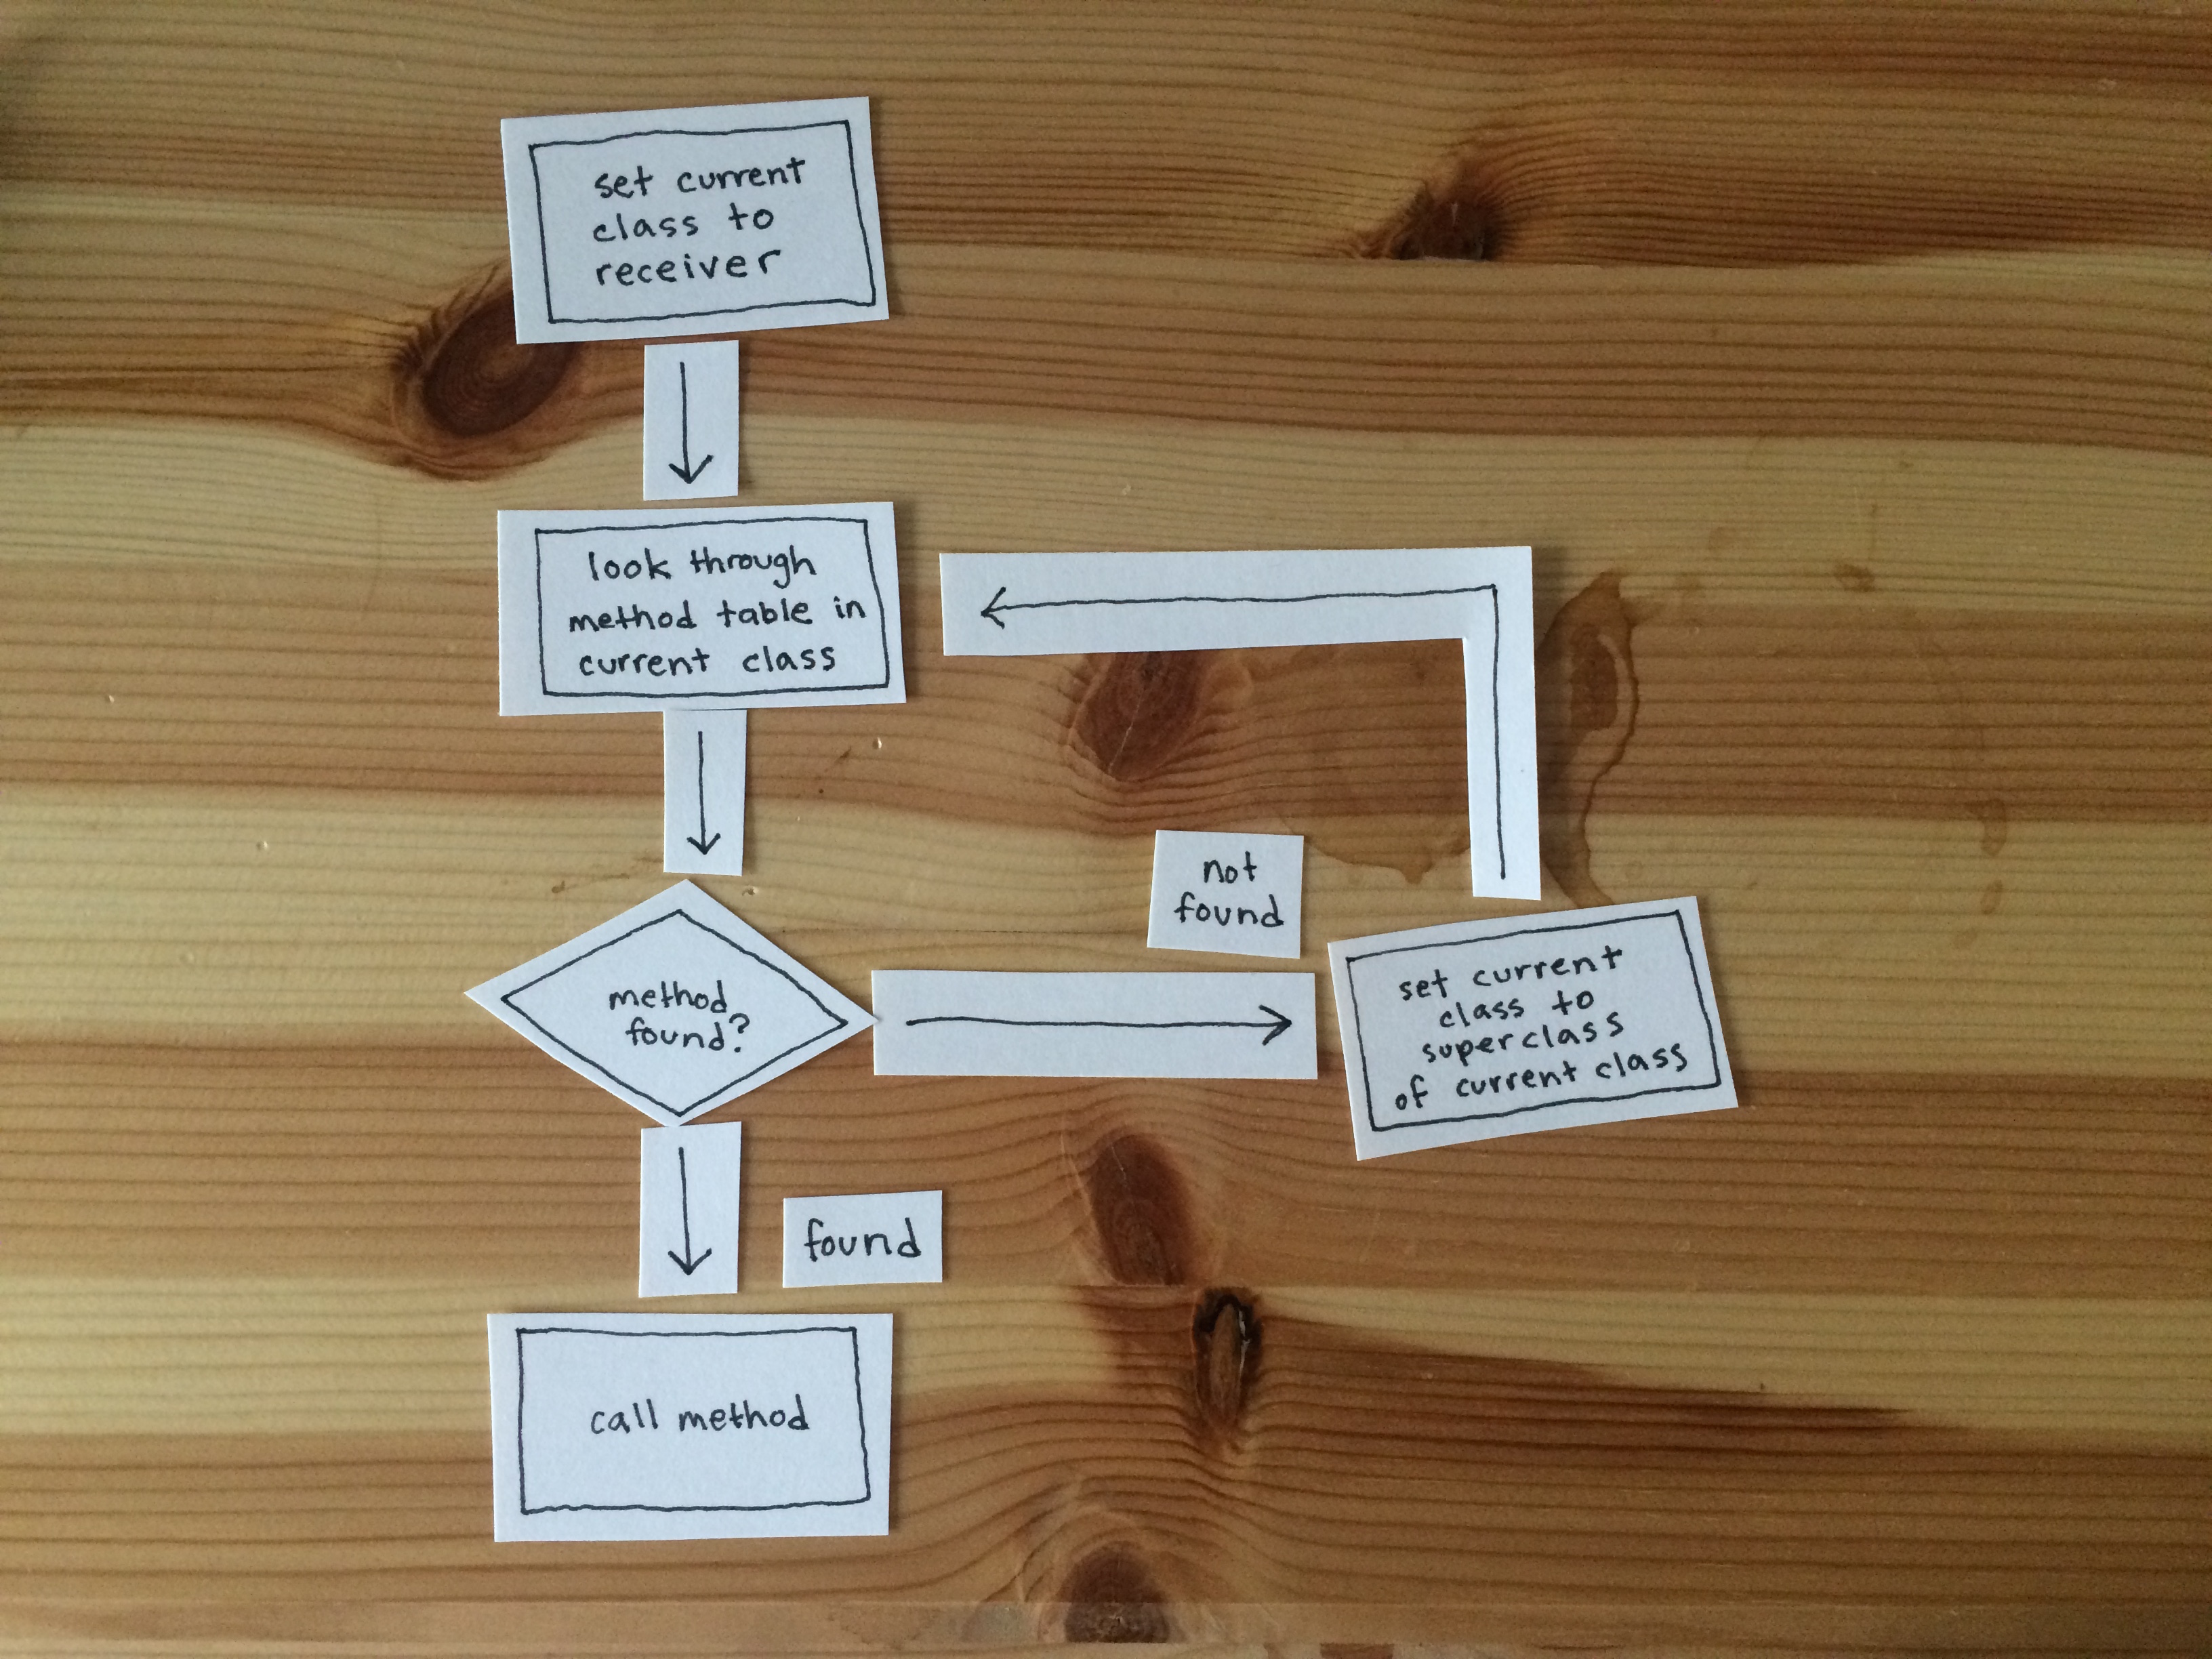 set current
class to
receiver
look through
method table in
current class
method
found?
not
found
set current
class to
superclass
of current class
found
call method